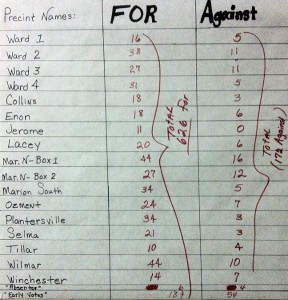 Precint Names: FOR Against
Ward 1 16 5
Ward 2 38 11
Ward 3 27 11
Ward 4 31 5
Collins 18 3
Enon 18 6
Jerome 11 0
Lacey 20 6
Mar. N- Box 1 44 16
Mar. N- Box 2 27 12
Marion South 34 5
Ozment 24 7
Plantersville 34 3
Selma 21 3
Tillar 10 4
Wilmar 44 10
Winchester 14 7
"Absentee" 6 4
"Early Votes" 54
TOTAL
626 For
TOTAL
(172 Against)